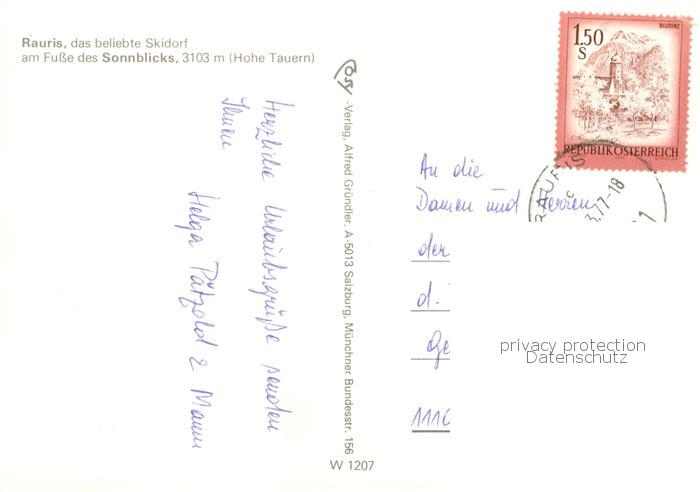 Rauris, das beliebte Skidorf
am Fuße des Sonnblicks, 3103 m (Hohe Tauern)
Herzliche Urlaubsgrüße senden
Ihnen
Helga Pätzold & Mann
Cosy-Verlag, Alfred Gründler, A-5013 Salzburg, Münchner Bundesstr. 156
W 1207
BLUDENZ
1.50
S
REPUBLIK ÖSTERREICH
RAURIS
3.77-18
An die
Damen und Herren
der
d.
Ge
1110
privacy protection
Datenschutz